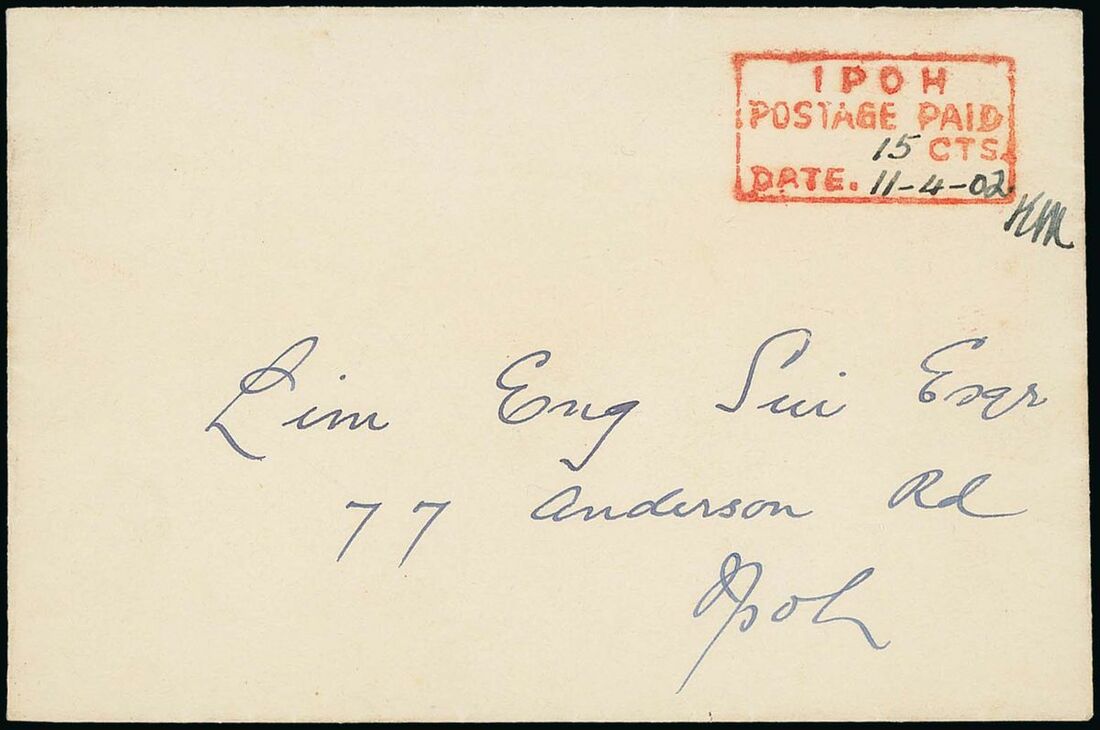 IPOH
POSTAGE PAID
15 CTS.
DATE. 11-4-02
KM
Lim Eng Sui Esqr
77 Anderson Rd
Ipoh